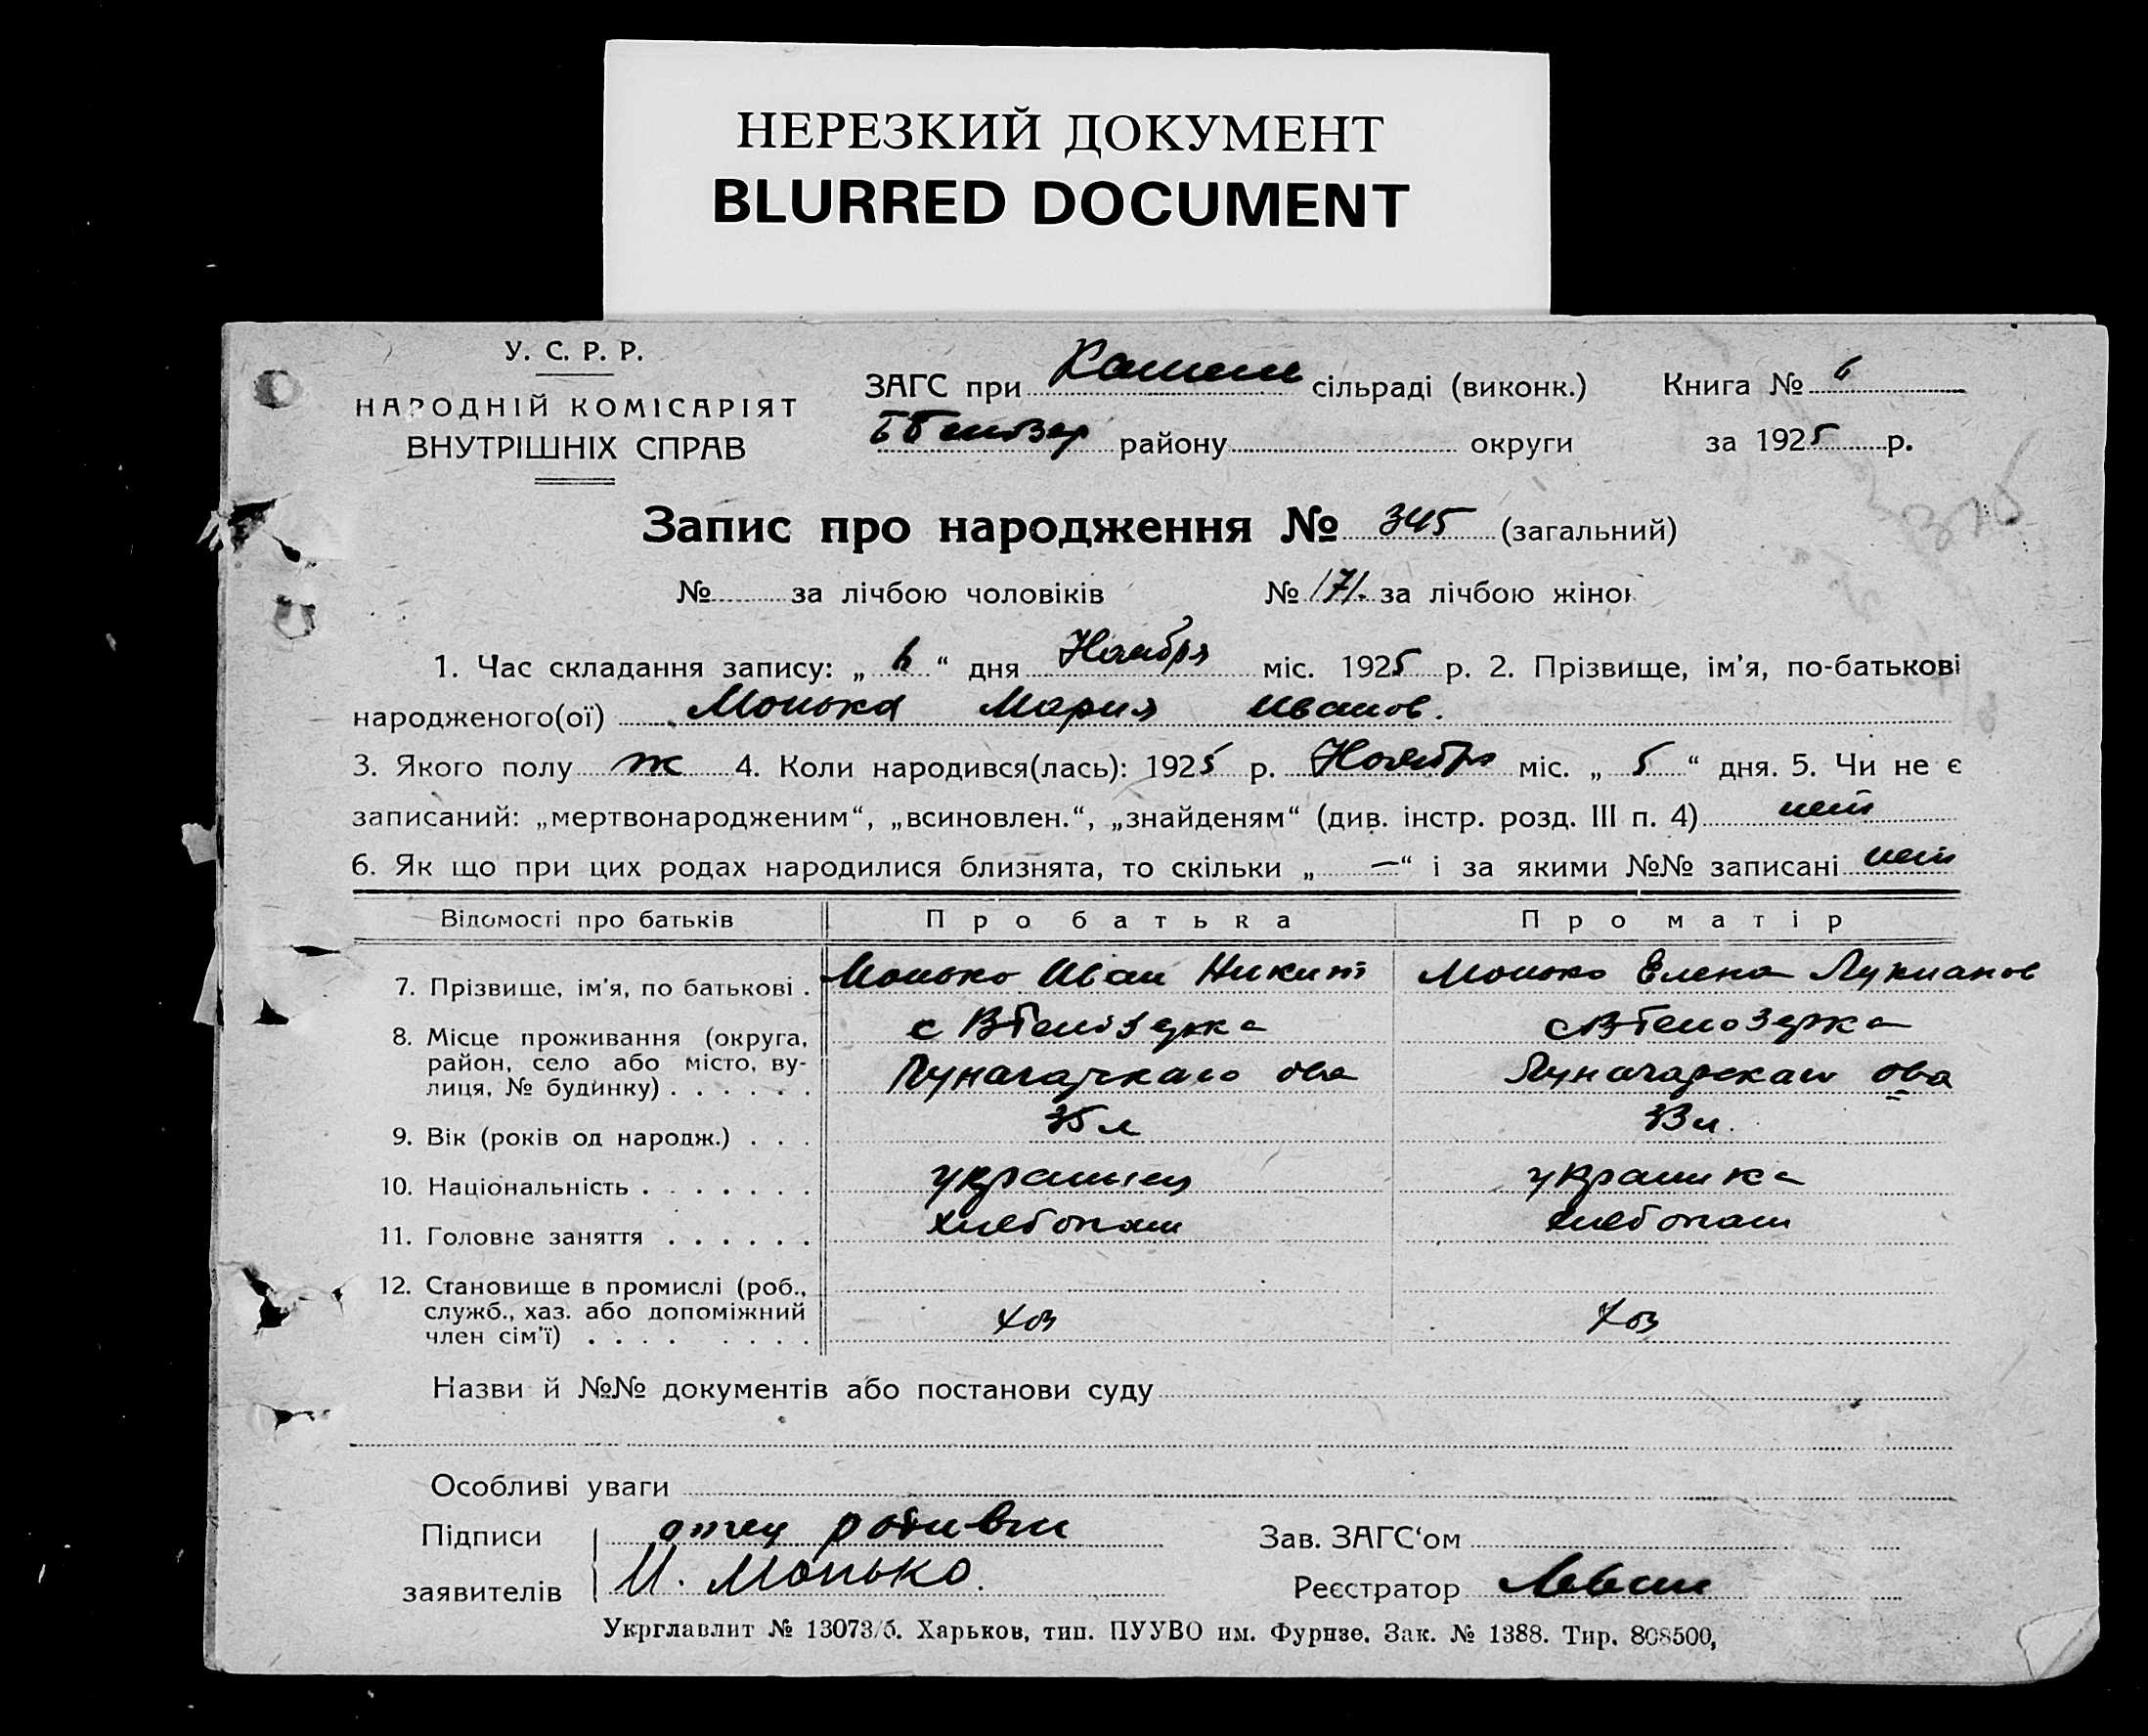 НЕРЕЗКИЙ ДОКУМЕНТ
BLURRED DOCUMENT
У. С. Р. Р.
НАРОДНІЙ КОМІСАРІЯТ
ВНУТРІШНІХ СПРАВ
ЗАГС при сільраді (виконк.)
району округи
Книга № 6
за 1925 р.
Запис про народження № 345 (загальний)
№ за лічбою чоловіків № 171. за лічбою жінок
1. Час складання запису: „ 6 “ дня Ноября міс. 1925 р. 2. Прізвище, ім’я, по-батькові
народженого(ої) Монька Мария Иванов.
3. Якого полу ж 4. Коли народився(лась): 1925 р. Ноября міс. „ 5 “ дня. 5. Чи не є
записаний: „мертвонародженим“, „всиновлен.“, „знайденям“ (див. інстр. розд. III п. 4) нет
6. Як що при цих родах народилися близнята, то скільки „ — “ і за якими №№ записані нет
Відомості про батьків Про батька Про матір
7. Прізвище, ім’я, по батькові . Монько Иван Никит Монько Елена Лукианов
8. Місце проживання (округа, район, село або місто, вулиця, № будинку) . . . . . . с Втбелозерка с Втбелозерка
Луначарскаго ова Луначарскаго ова
9. Вік (років од народж.) . . . 35 л 33 л.
10. Національність . . . . . . . украинец украинка
11. Головне заняття . . . . . . хлебопаш хлебопаш
12. Становище в промислі (роб., служб., хаз. або допоміжний член сім’ї) . . . . . . . . хоз хоз
Назви й №№ документів або постанови суду
Особливі уваги
Підписи заявителів отец родивш
И. Монько.
Зав. ЗАГС‘ом
Реєстратор
Укрглавлит № 13073/б. Харьков, тип. ПУУВО им. Фурнзе. Зак. № 1388. Тир. 808500,